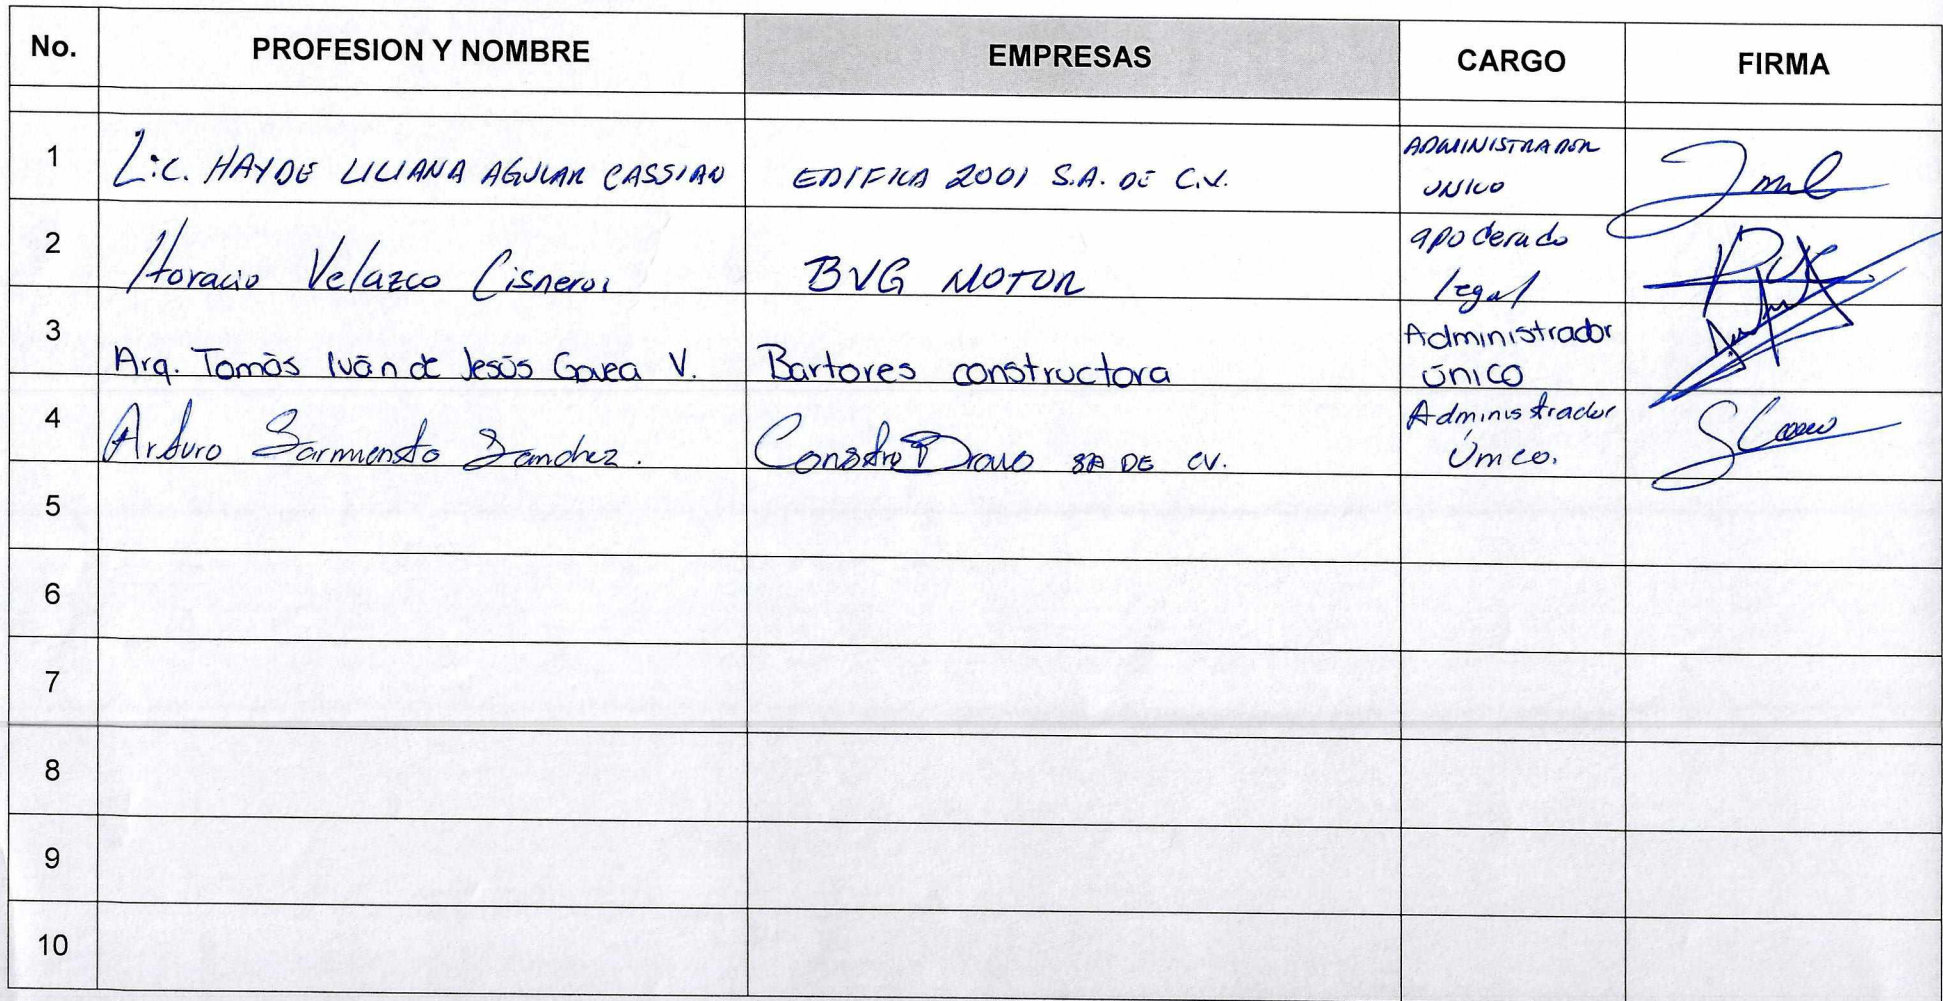 No. PROFESION Y NOMBRE EMPRESAS CARGO FIRMA
1 Lic. HAYDE LILIANA AGUILAR CASSIAN EDIFICA 2001 S.A. DE C.V. ADMINISTRADOR
UNICO
2 Horacio Velazco Cisneros BVG MOTOR apoderado
legal
3 Arq. Tomás Iván de Jesús Govea V. Bartores constructora Administrador
único
4 Arturo Sarmiento Sanchez. Constru Bravo SA DE CV. Administrador
Único.
5
6
7
8
9
10